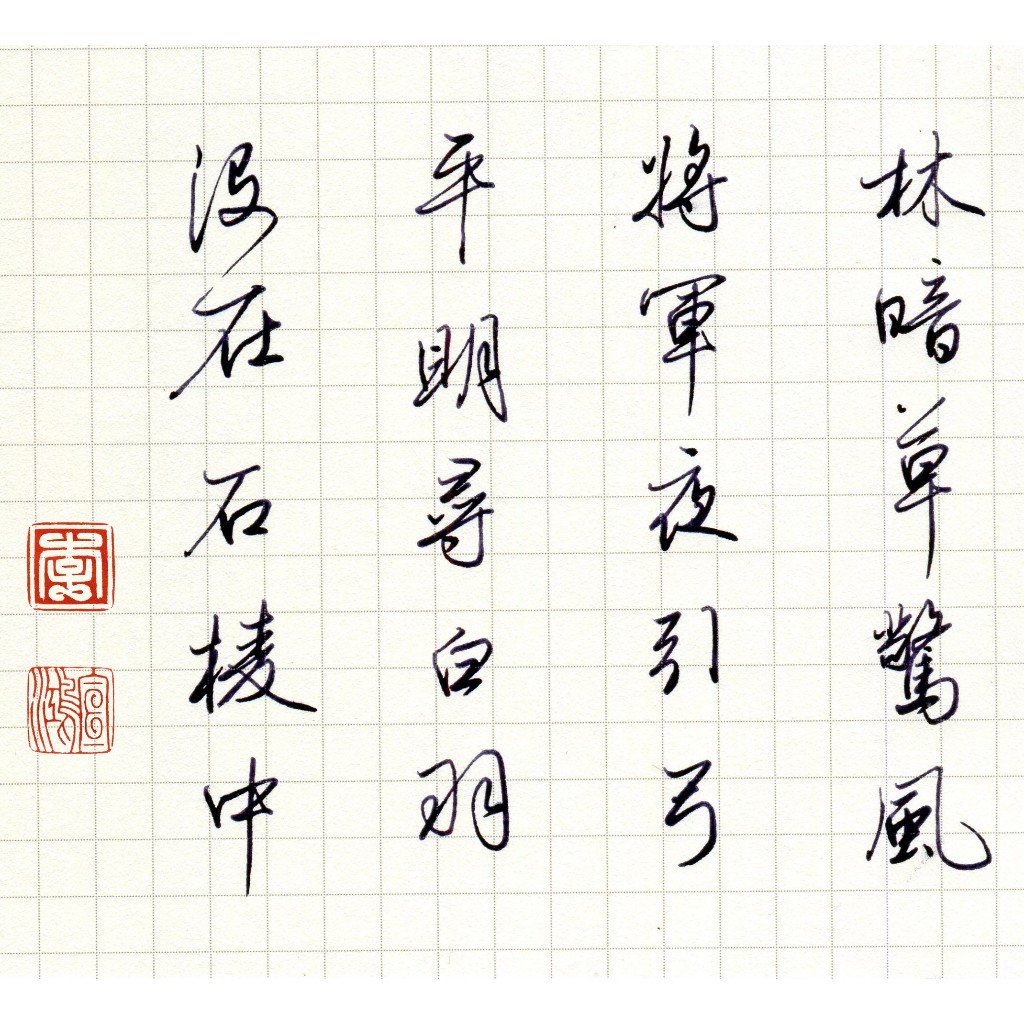 林暗草驚風
將軍夜引弓
平明尋白羽
沒在石棱中